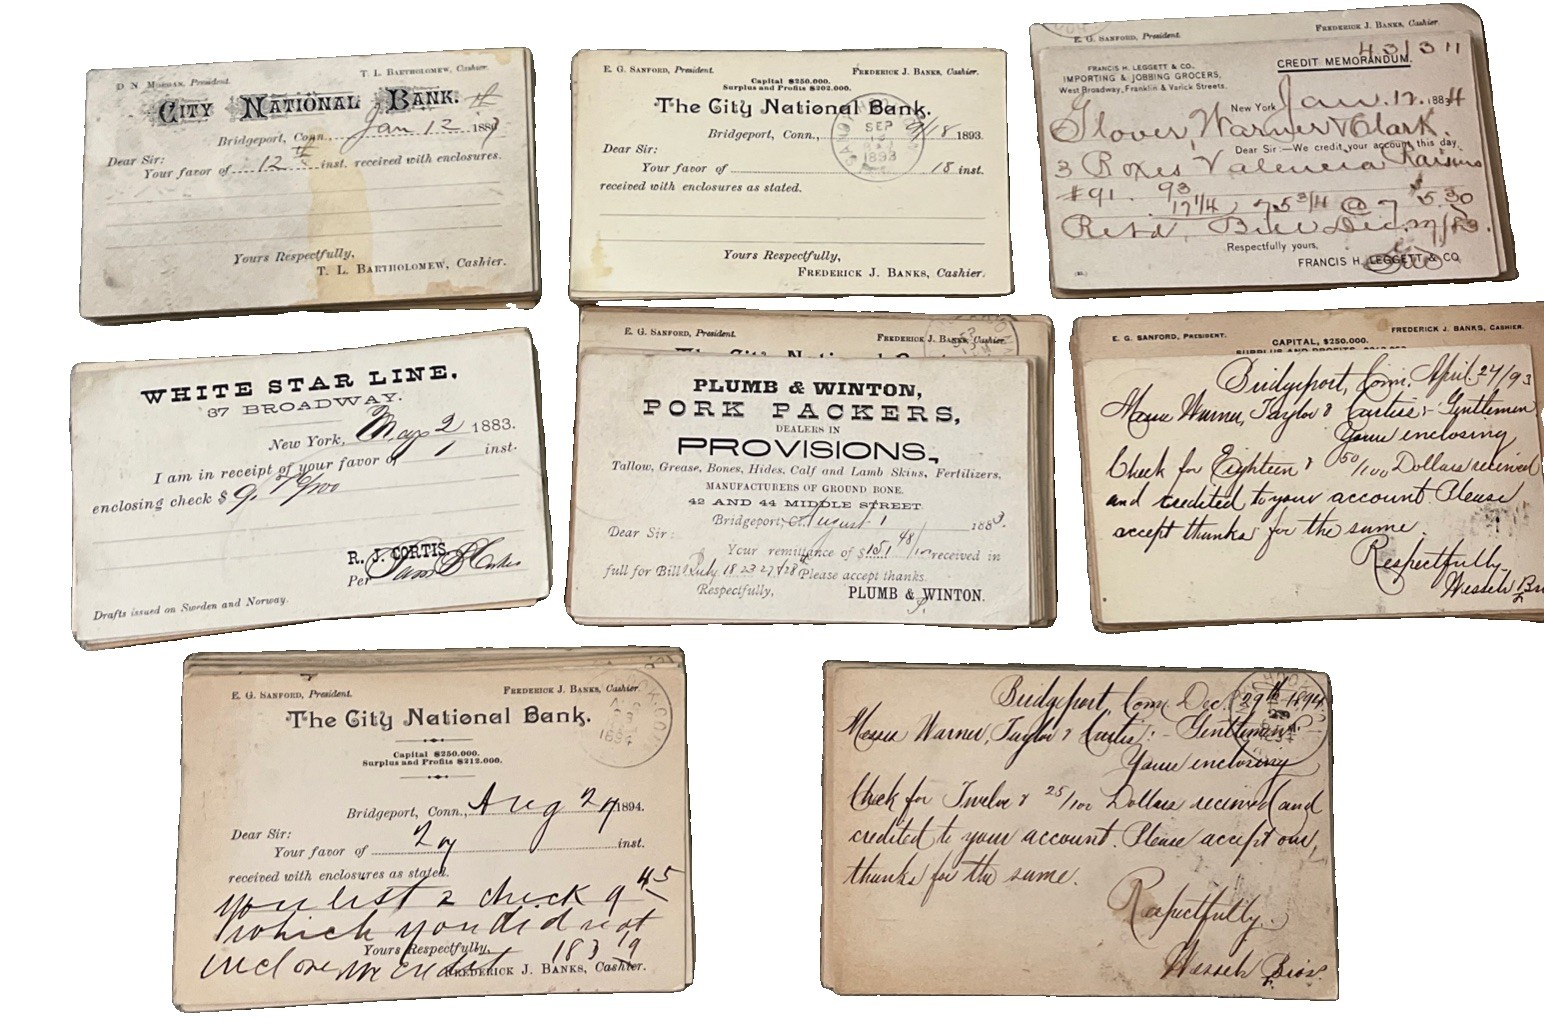 D. N. Morgan, President.
T. L. Bartholomew, Cashier.
City National Bank.
Bridgeport, Conn., Jan 12th 1883
Dear Sir:
Your favor of 12th inst. received with enclosures.
Yours Respectfully,
T. L. Bartholomew, Cashier.
E. G. Sanford, President.
Frederick J. Banks, Cashier.
Capital $250.000.
Surplus and Profits $202.000.
The City National Bank.
Bridgeport, Conn., 9/18 1893.
SEP
1893
Dear Sir:
Your favor of 18 inst.
received with enclosures as stated.
Yours Respectfully,
Frederick J. Banks, Cashier.
E. G. Sanford, President.
Frederick J. Banks, Cashier.
43/311
FRANCIS H. LEGGETT & CO.
IMPORTING & JOBBING GROCERS,
West Broadway, Franklin & Varick Streets.
CREDIT MEMORANDUM.
New York Jan. 12. 1884
Glover, Warner & Clark.
Dear Sir:—We credit your account this day
3 Boxes Valencia Raisins
#91. 93
17 1/4, 75 3/4 @ 7 $5.30
Retd. Bill Dec. 27/83.
Respectfully yours,
FRANCIS H. LEGGETT & CO.
WHITE STAR LINE,
37 BROADWAY.
New York, May 2 1883.
I am in receipt of your favor of 1 inst.
enclosing check $ 9. /100
R. J. CORTIS,
Per
Drafts issued on Sweden and Norway.
E. G. Sanford, President.
Frederick J. Banks, Cashier.
The City National Bank.
PLUMB & WINTON,
PORK PACKERS,
DEALERS IN
PROVISIONS,
Tallow, Grease, Bones, Hides, Calf and Lamb Skins, Fertilizers,
MANUFACTURERS OF GROUND BONE.
42 AND 44 MIDDLE STREET.
Bridgeport, Ct. August 1 1883.
Dear Sir:
Your remittance of $151 48/100 received in
full for Bill July 18 23 27 & 28th Please accept thanks.
Respectfully,
PLUMB & WINTON.
E. G. Sanford, President.
Frederick J. Banks, Cashier.
CAPITAL, $250.000.
SURPLUS AND PROFITS,
Bridgeport, Conn. April 24/93
Messrs Warner, Taylor & Curtis:- Gentlemen
Yours enclosing
Check for Eighteen & 50/100 Dollars received
and credited to your account. Please
accept thanks for the same.
Respectfully
Wessels Br
E. G. Sanford, President.
Frederick J. Banks, Cashier.
The City National Bank.
1894
Capital $250.000.
Surplus and Profits $212.000.
Bridgeport, Conn., Aug 27 1894.
Dear Sir:
Your favor of 27 inst.
received with enclosures as stated.
you list a check 9 45
which you did not
Yours Respectfully,
183 19
enclose we credit
Frederick J. Banks, Cashier.
Bridgeport, Conn. Dec. 29th 1894
Messrs Warner, Taylor & Curtis:- Gentlemen:-
Yours enclosing
Check for Twelve & 25/100 Dollars received and
credited to your account. Please accept our
thanks for the same.
Respectfully.
Wessels Bros.